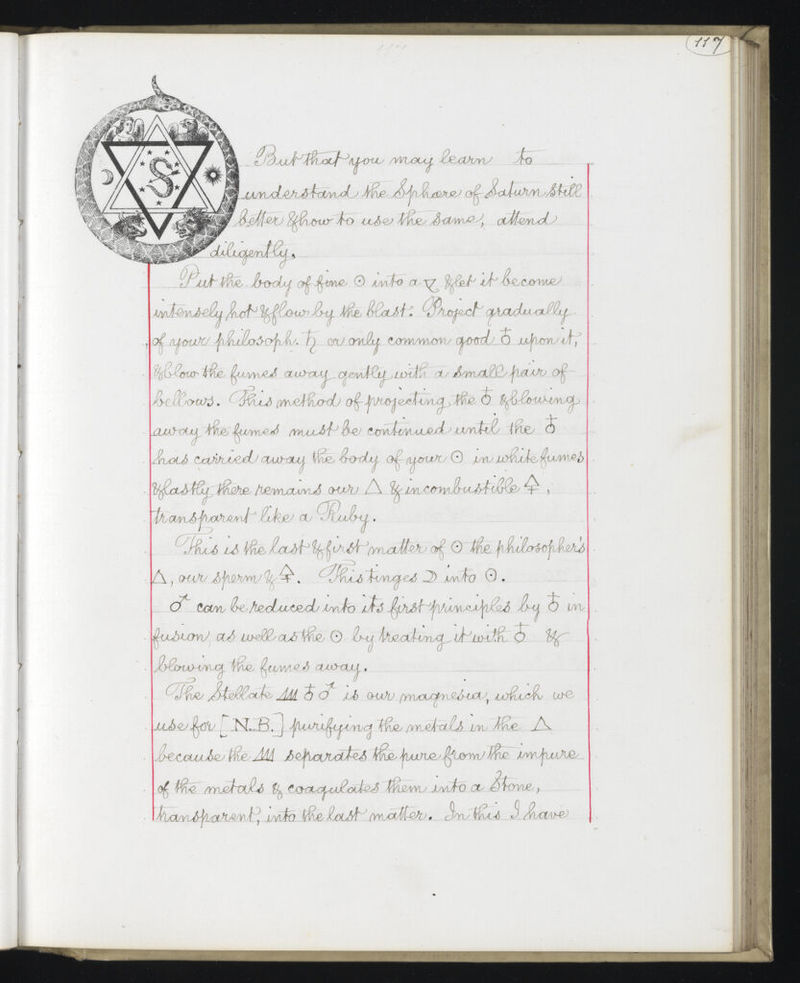 117
But that you may learn to
understand the Sphære of Saturn still
better & how to use the same, attend
diligently.
Put the body of fine ☉ into a 🜿 & let it become
intensely hot & flow by the blast. Project gradually
of your philosoph. ♄ or only common good ♁ upon it,
& blow the fumes away gently with a small pair of
bellows. This method of projecting the ♁ & blowing
away the fumes must be continued until the ♁
has carried away the body of your ☉ in white fumes
& lastly there remains our △ & incombustible 🜍,
transparent like a Ruby.
This is the last & first matter of ☉ the philosopher's
△, our sperm & 🜍. This tinges ☽ into ☉.
♂ can be reduced into its first principles by ♁ in
fusion, as well as the ☉ by treating it with ♁ &
blowing the fumes away.
The Stellate ♁ ♂ is our magnesia, which we
use for [N.B.] purifying the metals in the △
because the separates the pure from the impure
of the metals & coagulates them into a Stone,
transparent, into the last matter. In this I have